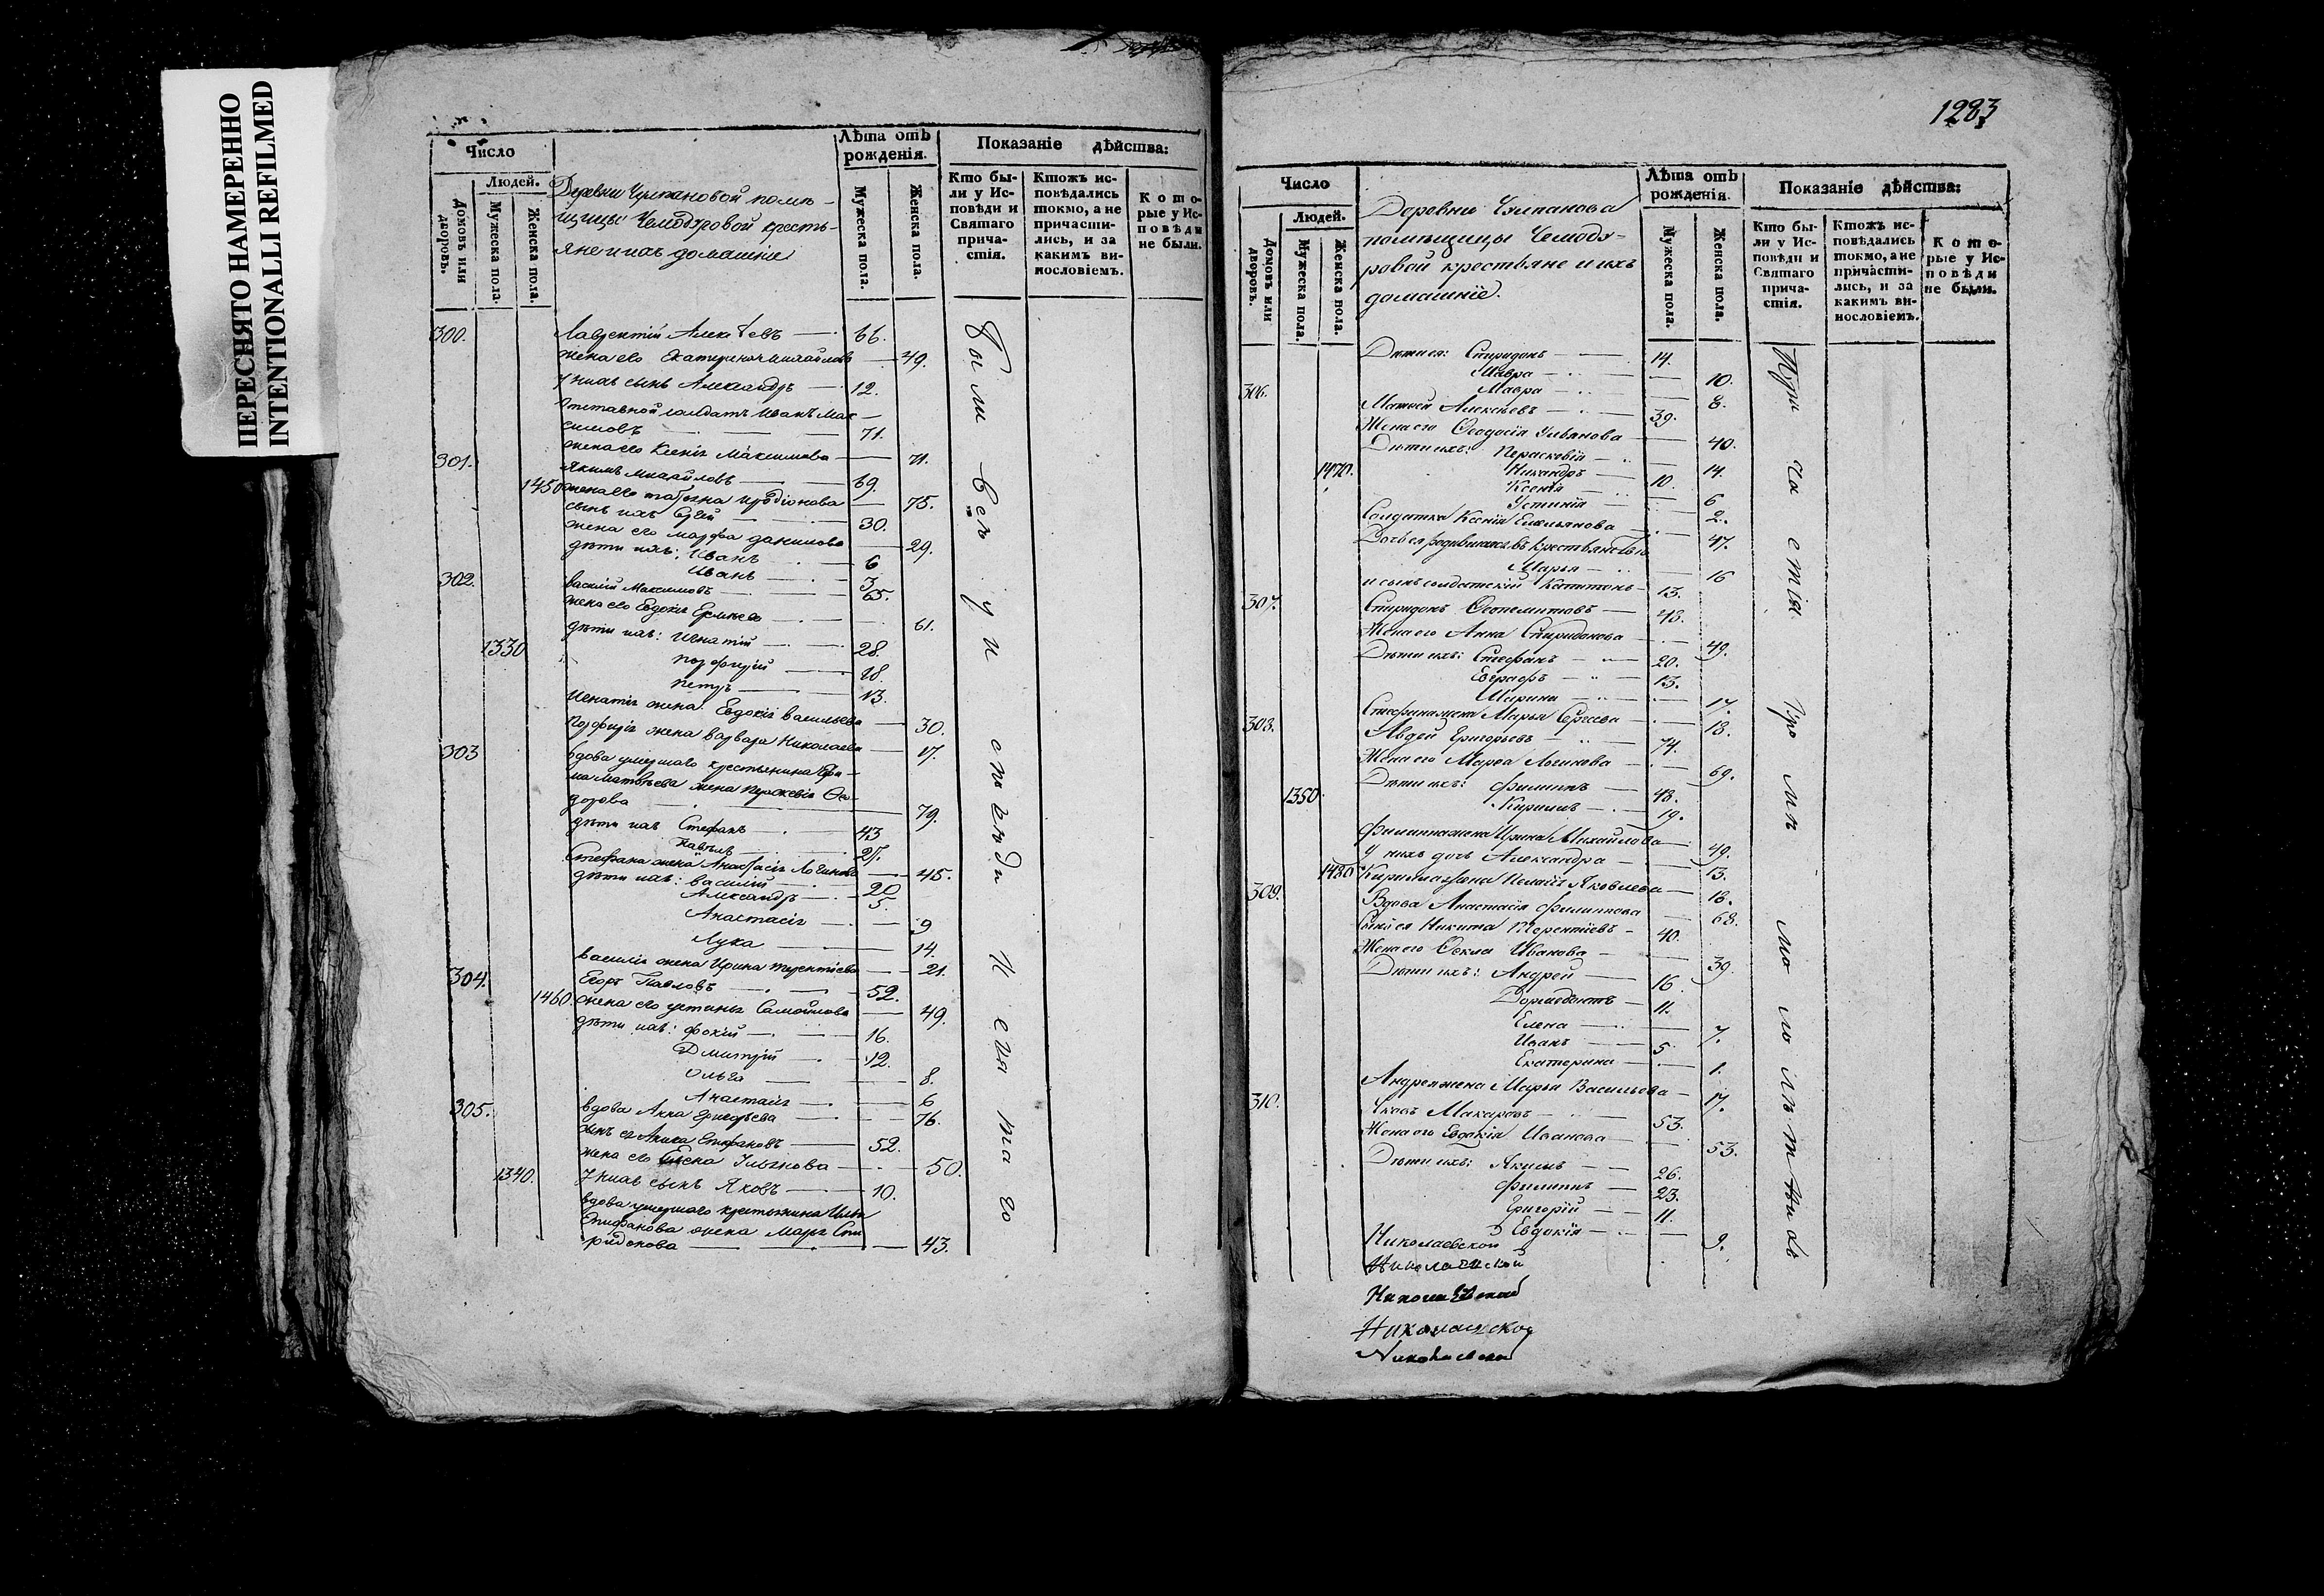 ПЕРЕСНЯТО НАМЕРЕННО
INTENTIONALLI REFILMED
Число
Людей.
Домовъ или дворовъ.
Мужеска пола.
Женска пола.
Деревни Чулпановой помѣ-
щицы Чемодуровой кресть-
яне и ихъ домашніе
Лѣта отъ рожденія.
Мужеска пола.
Женска пола.
Показаніе дѣйства:
Кто бы-
ли у Ис-
повѣди и
Святаго
прича-
стія.
Ктожъ ис-
повѣдались
токмо, а не
причасти-
лись, и за
какимъ ви-
нословіемъ.
Кото-
рые у Ис-
повѣди
не были.
300. Лаврентій Алексѣевъ 66.
жена его Екатерина Михайлова 49.
У нихъ сынъ Александръ 12.
Отставной солдатъ Иванъ Мак-
симовъ 71.
жена его Ксенія Максимова 71.
301. Якимъ Михайловъ 69.
1450 жена его Татьяна Иродіонова 75.
сынъ ихъ 30.
жена его Марфа Данилова 29.
дѣти ихъ: Иванъ 6
Иванъ 3
302. Василій Максимовъ 65.
жена его Евдокія 61.
дѣти ихъ: Игнатій 28.
1330 Порфирій 18.
Петръ 13.
Игнатія жена Евдокія Васильева 30.
Порфирія жена Варвара Николаева 17.
303 Вдова умершаго крестьянина
Матвѣева жена Параскевія Ѳео-
дорова 79.
дѣти ихъ Стефанъ 43
Павелъ 27.
Стефана жена Анастасія Логинова 45.
дѣти ихъ: Василій 20
Александръ 5.
Анастасія 9
Лука 14.
Василія жена Ирина Терентіева 21.
304. Егоръ Павловъ 52.
1460. жена его Устинья Самойлова 49.
дѣти ихъ: Фокій 16.
Дмитрій 12.
Ольга 8.
Анастасія 6
305. вдова Анна Григорьева 76.
сынъ ея Аника Епифановъ 52.
жена его Елена 50.
1340. У нихъ сынъ Яковъ 10.
вдова умершаго крестьянина Ильи
Епифанова жена Марья Спи-
ридонова 43.
Были всѣ у исповѣди и свята го
1283
Число
Людей.
Домовъ или дворовъ.
Мужеска пола.
Женска пола.
Деревни Чулпанова
помѣщицы Чемоду-
ровой крестьяне и ихъ
домашніе.
Лѣта отъ рожденія.
Мужеска пола.
Женска пола.
Показаніе дѣйства:
Кто бы-
ли у Ис-
повѣди и
Святаго
прича-
стія.
Ктожъ ис-
повѣдались
токмо, а не
причасти-
лись, и за
какимъ ви-
нословіемъ.
Кото-
рые у Ис-
повѣди
не были.
Дѣти ея: Спиридонъ 14.
Мавра 10.
Мавра 8.
306. Матвей Алексѣевъ 39.
Жена его Ѳеодосія Ульянова 40.
Дѣти ихъ: Перасковія 14.
1470. Никандръ 10.
Ксенія 6
Устинія 2.
Солдатка Ксенія Емельянова 47.
Дочь ея родившаяся въ крестьянствѣ
Марья 16
и сынъ солдатскій Капитонъ 13.
307. Спиридонъ 48.
Жена его Анна Спиридонова 49.
Дѣти ихъ: Стефанъ 20.
Евграфъ 13.
Марина 17.
Стефана жена Марья Сергеева 18.
308. Авдей Григорьевъ 74.
Жена его Марѳа Логинова 69.
Дѣти ихъ: Филиппъ 48.
1350. Кирилъ 19.
Филиппа жена Ирина Михайлова 49.
У нихъ дочь Александра 13.
1480 Кирилла жена Пелагія Яковлева 18.
309. Вдова Анастасія Филиппова 68.
Сынъ ея Никита Терентіевъ 40.
Жена его Ѳекла Иванова 39.
Дѣти ихъ: Андрей 16.
Дормедонтъ 11.
Елена 7.
Иванъ 5.
Екатерина 1.
Андрея жена Марья Васильева 17.
310. Макаровъ 53.
Жена его Евдокія Иванова 53.
Дѣти ихъ: Якимъ 26.
Филиппъ 23.
Григорій 11.
Евдокія 9.
Прича стія
Николаевской
Николаевской
Николаевской
Николаевской
Николаевской